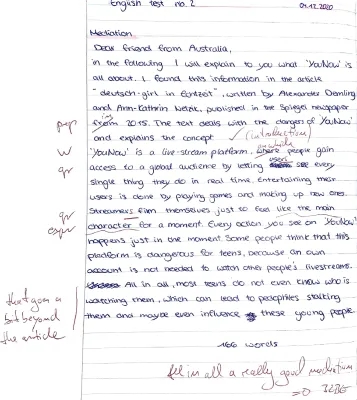 English test no. 2 01.12.2020
Mediation
Dear friend from Australia,
in the following I will explain to you what 'YouNow' is
all about. I found this information in the article
"deutsch-girl in Echtzeit", written by Alexander Demling
and Ann-Kathrin Nezik, published in the Spiegel newspaper
from 2015. The text deals with the dangers of 'YouNow'
prep
and explains the concept ✓ (introduction)
on which
W 'YouNow' is a live-stream platform, where people gain
users
gr access to a global audience by letting see every
single thing they do in real time. Entertaining their
users is done by playing games and making up new ones.
gr Streamers film themselves just to feel like the main
expr character for a moment. Every action you see on 'YouNow'
happens just in the moment. Some people think that this
platform is dangerous for teens, because an own
account is not needed to watch other people's livestreams.
that goes a All in all, most teens do not even know who is
bit beyond watching them, which can lead to pedophiles stalking
the article them and maybe even influence these young people.
166 words
All in all a really good mediation